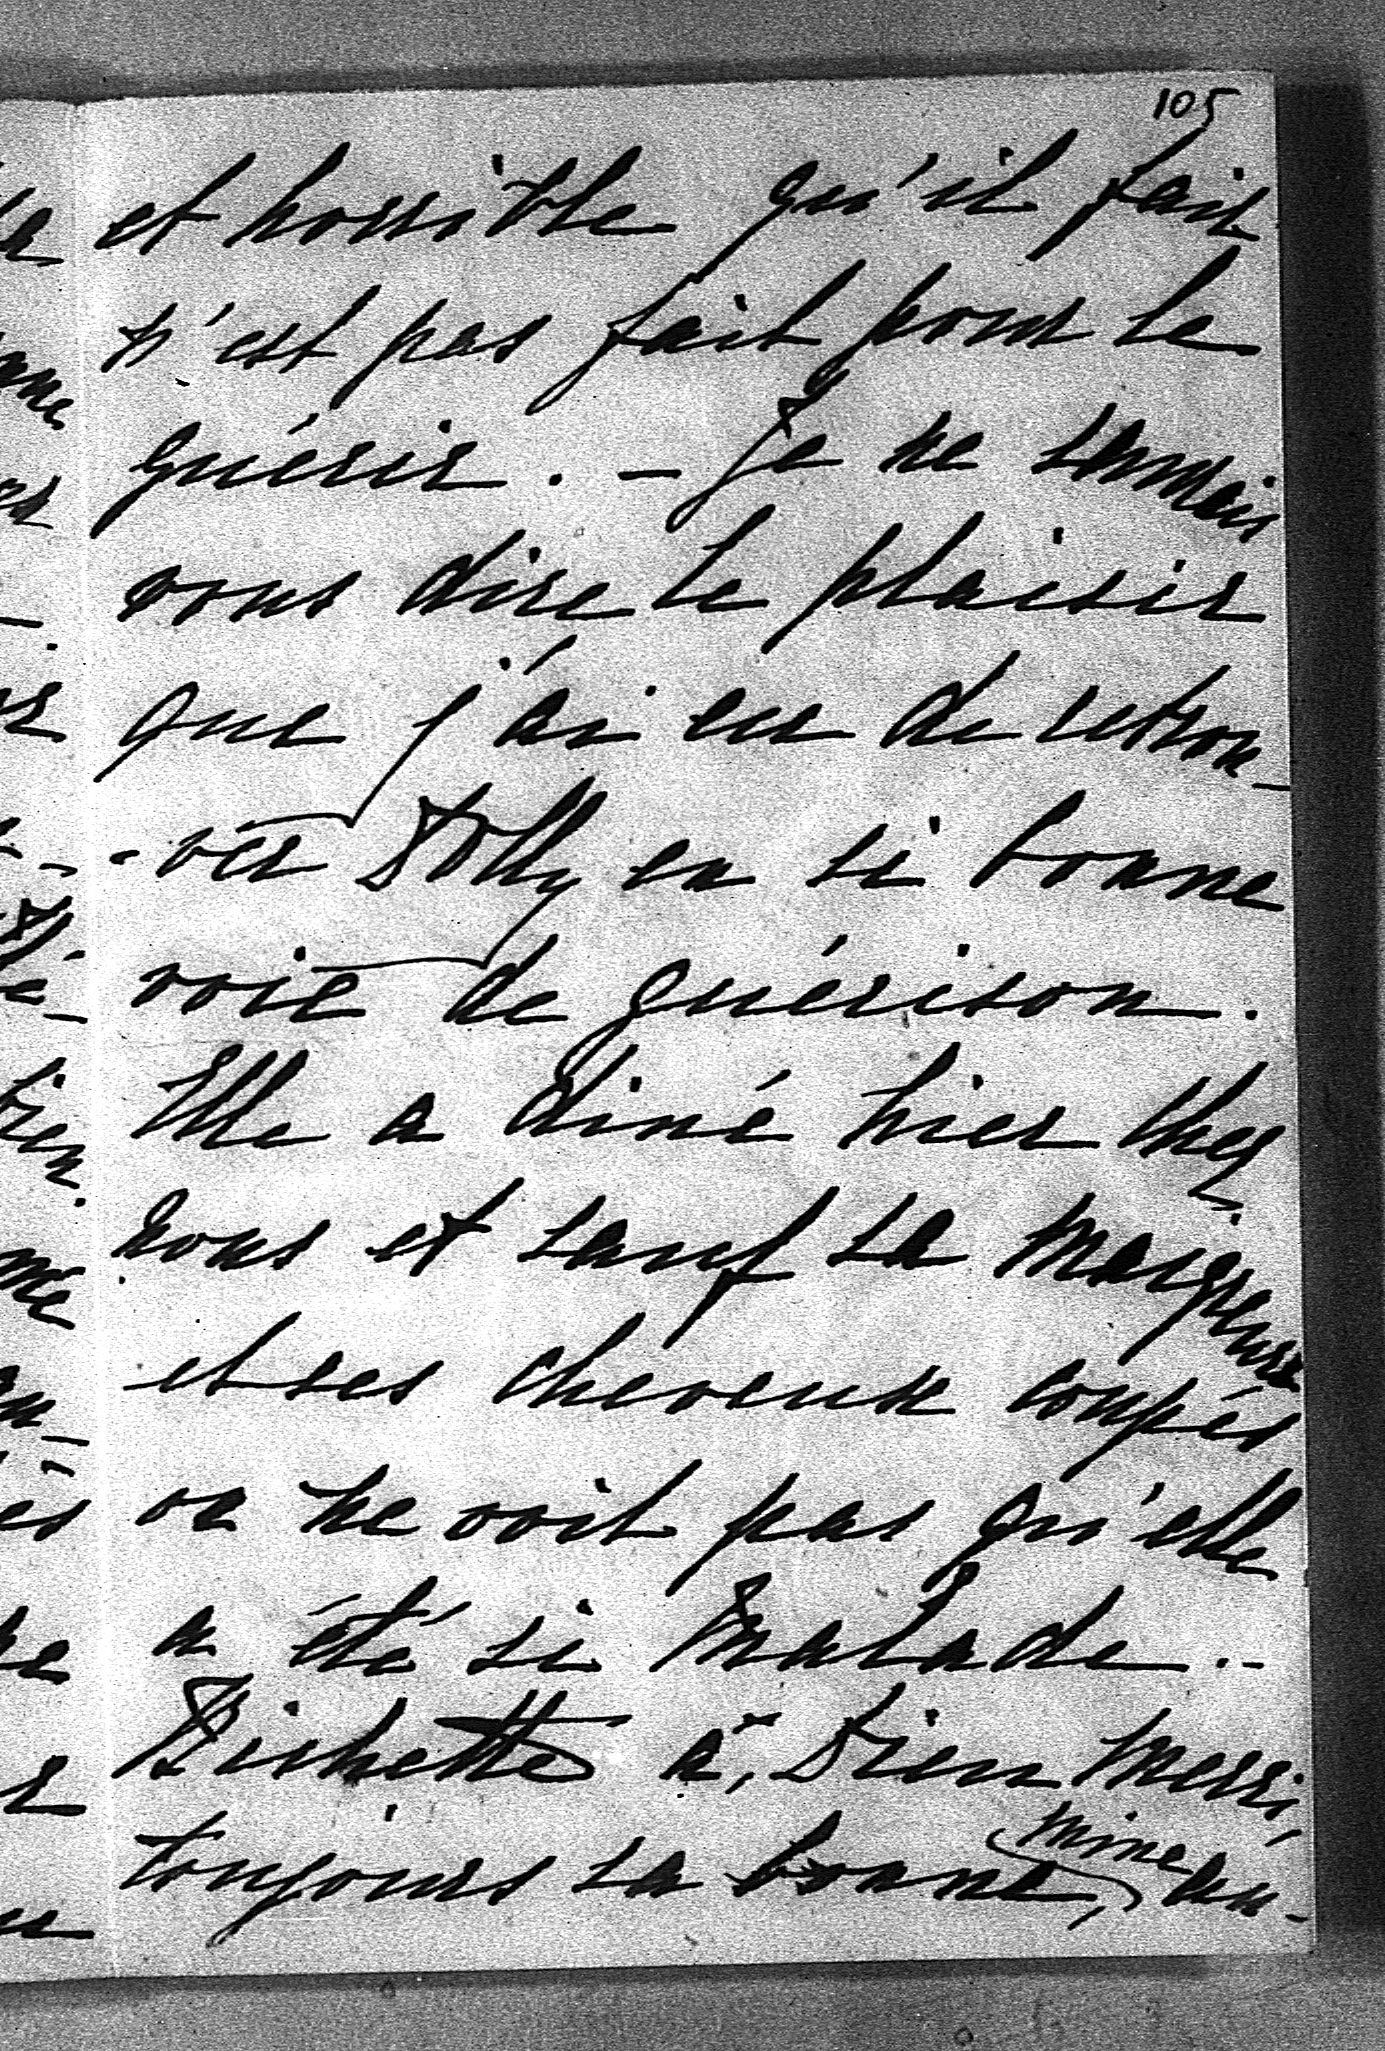 105
et horrible qu'il fait
n'est pas fait pour le
guérir. - Je ne saurais
vous dire le plaisir
que j'ai eu de retrou-
-ver Dolly en si bonne
voie de guérison.
Elle a diné hier chez
nous et sauf sa maigreur
et ses cheveux coupés
on ne voit pas qu'elle
a été si malade. -
a, Dieu merci,
toujours sa bonne mine, au-